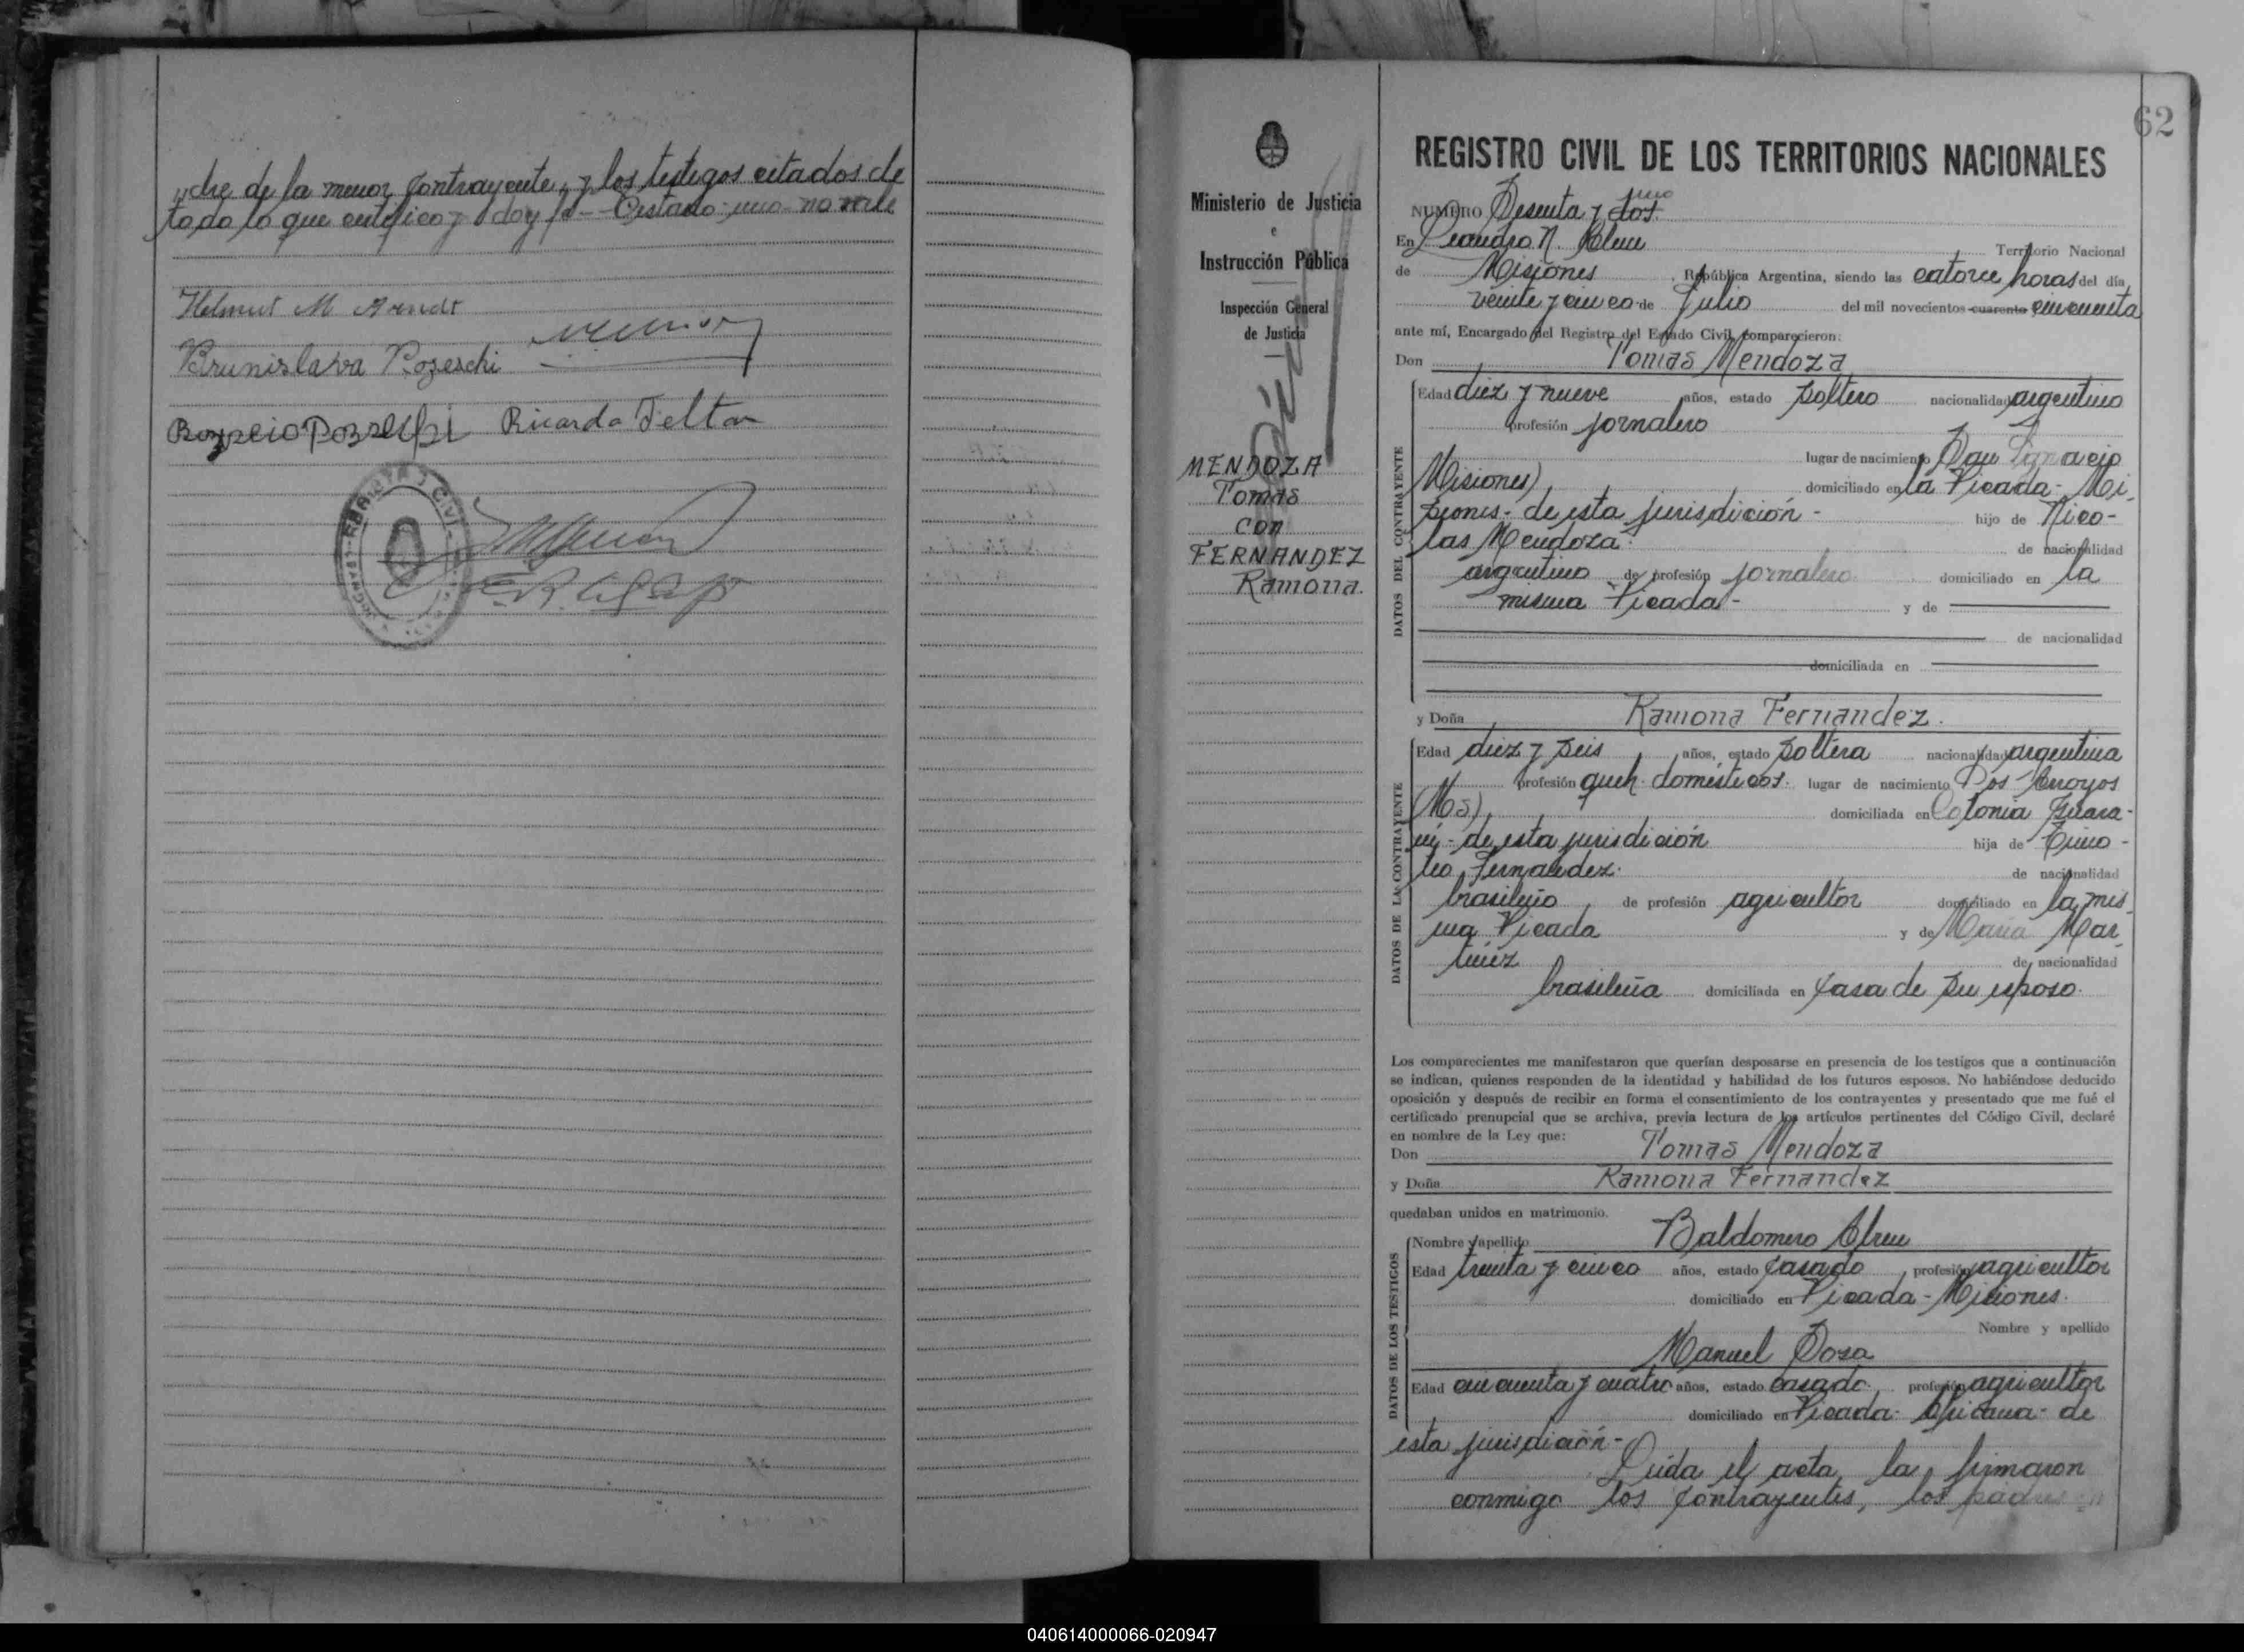 dre de la menor contrayente, y los testigos citados de
todo lo que certifico y doy fé - Testado: uno no vale
Helmut M Arndt
Brunislava Pozeschi
Ricardo Feltan
62
REGISTRO CIVIL DE LOS TERRITORIOS NACIONALES
Ministerio de Justicia
e
Instrucción Pública
Inspección General
de Justicia
MENDOZA
Tomas
con
FERNANDEZ
Ramona.
uno
NUMERO Sesenta y dos.
En Leandro N. Alem Territorio Nacional
de Misiones República Argentina, siendo las catorce horas del día
veinte y cinco de Julio del mil novecientos cuarenta cincuenta
ante mí, Encargado del Registro del Estado Civil, comparecieron:
Don Tomas Mendoza
DATOS DEL CONTRAYENTE
Edad diez y nueve años, estado soltero nacionalidad argentino
profesión jornalero
lugar de nacimiento San
Misiones) domiciliado en la Picada - Mi-
siones - de esta jurisdición - hijo de Nico-
las Mendoza. de nacionalidad
argentino de profesión jornalero domiciliado en la
misma Picada - y de
de nacionalidad
domiciliada en
y Doña Ramona Fernandez.
DATOS DE LA CONTRAYENTE
Edad diez y seis años, estado soltera nacionalidad argentina
profesión queh. domésticos. lugar de nacimiento Dos Arroyos
(Mos) domiciliada en Colonia Guara-
ní - de esta jurisdición hija de Timo-
teo Fernandez. de nacionalidad
brasileño de profesión agricultor domiciliado en la mis-
ma Picada y de Maria Mar-
tinez de nacionalidad
brasileña domiciliada en casa de su esposo.
Los comparecientes me manifestaron que querían desposarse en presencia de los testigos que a continuación
se indican, quienes responden de la identidad y habilidad de los futuros esposos. No habiéndose deducido
oposición y después de recibir en forma el consentimiento de los contrayentes y presentado que me fué el
certificado prenupcial que se archiva, previa lectura de los artículos pertinentes del Código Civil, declaré
en nombre de la Ley que:
Don Tomas Mendoza
y Doña Ramona Fernandez
quedaban unidos en matrimonio.
DATOS DE LOS TESTIGOS
Nombre y apellido Baldomero Abreu
Edad treinta y cinco años, estado casado profesión agricultor
domiciliado en Picada - Misiones.
Nombre y apellido
Manuel Sosa
Edad cincuenta y cuatro años, estado casado profesión agricultor
domiciliado en Picada - Africana - de
esta jurisdición -
Leida el acta, la firmaron
conmigo los contrayentes, los padres
040614000066-020947